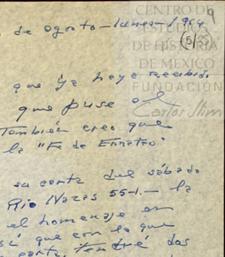 de agosto - lunes - 1964
(5)
CENTRO DE
ESTUDIOS
DE HISTORIA
DE MÉXICO
FUNDACIÓN
Carlos Slim
que ya haya recibido
que puse el
También creo que
la "Fe de Erratas"
su carta del sábado
Río Nazas 55-1.- la
el homenaje en
que con lo que
carta. Tendré dos